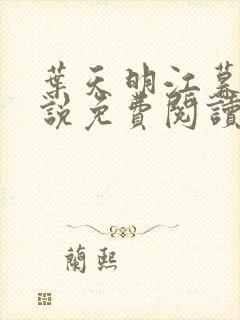 葉天明江慕
說免費閱讀
蘭熙